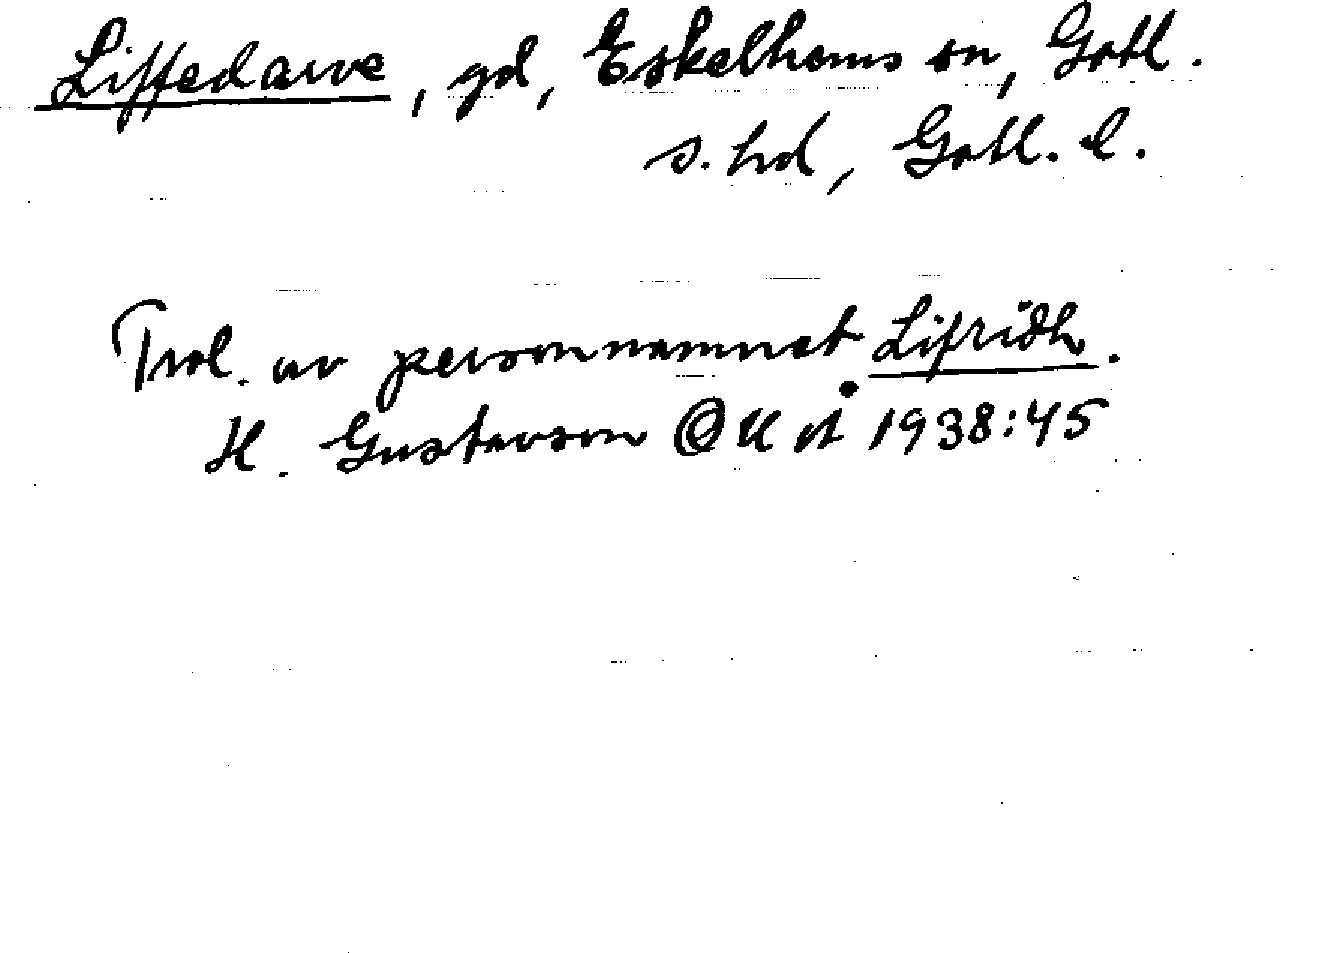 Liffedarve, gd, Eskelhems sn, Gotl.
s. hd, Gotl. l.
Trol. av personnamnet Lifridh.
H. Gustavson 1938:45